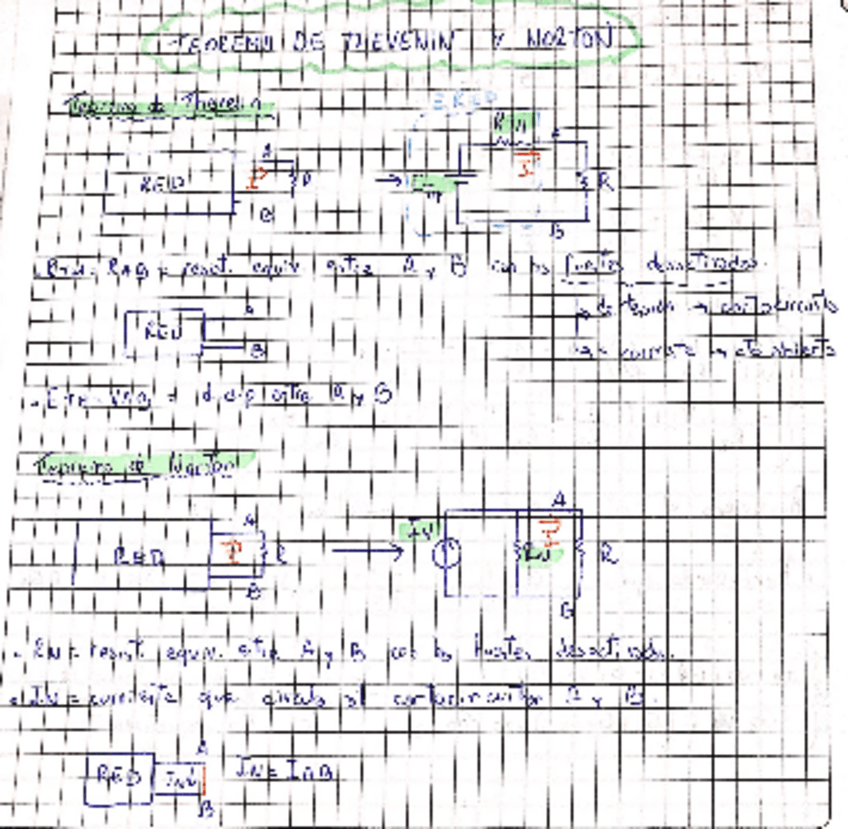 TEOREMA DE THEVENIN Y NORTON
Teorema de Thevenin
E.R.E.D
RTH
A
A
RED
I
R
I
R
B
B
RTH = RAB = resist. equiv. entre A y B con las fuentes desactivadas.
de tensión → cortocircuito
A
RED
B
de corriente → cto abierto
ETH = VAB = d.d.p entre A y B
Teorema de Norton
A
IN
A
RED
I
R
I
RN
R
B
B
. RN = resist. equiv. entre A y B con las fuentes desactivadas.
. IN = corriente que circula al cortocircuitar A y B.
A
RED
IN
IN = IAB
B